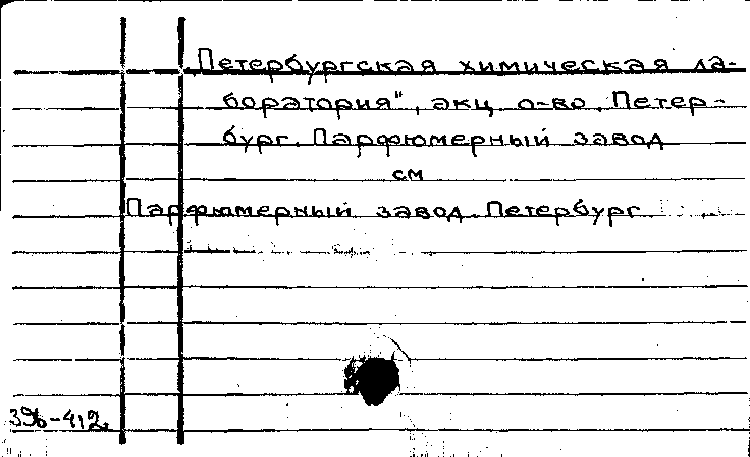 „Петербургская химическая ла-
боратория", акц. о-во. Петер-
бург. Парфюмерный завод
см
Парфюмерный завод. Петербург
396-412.